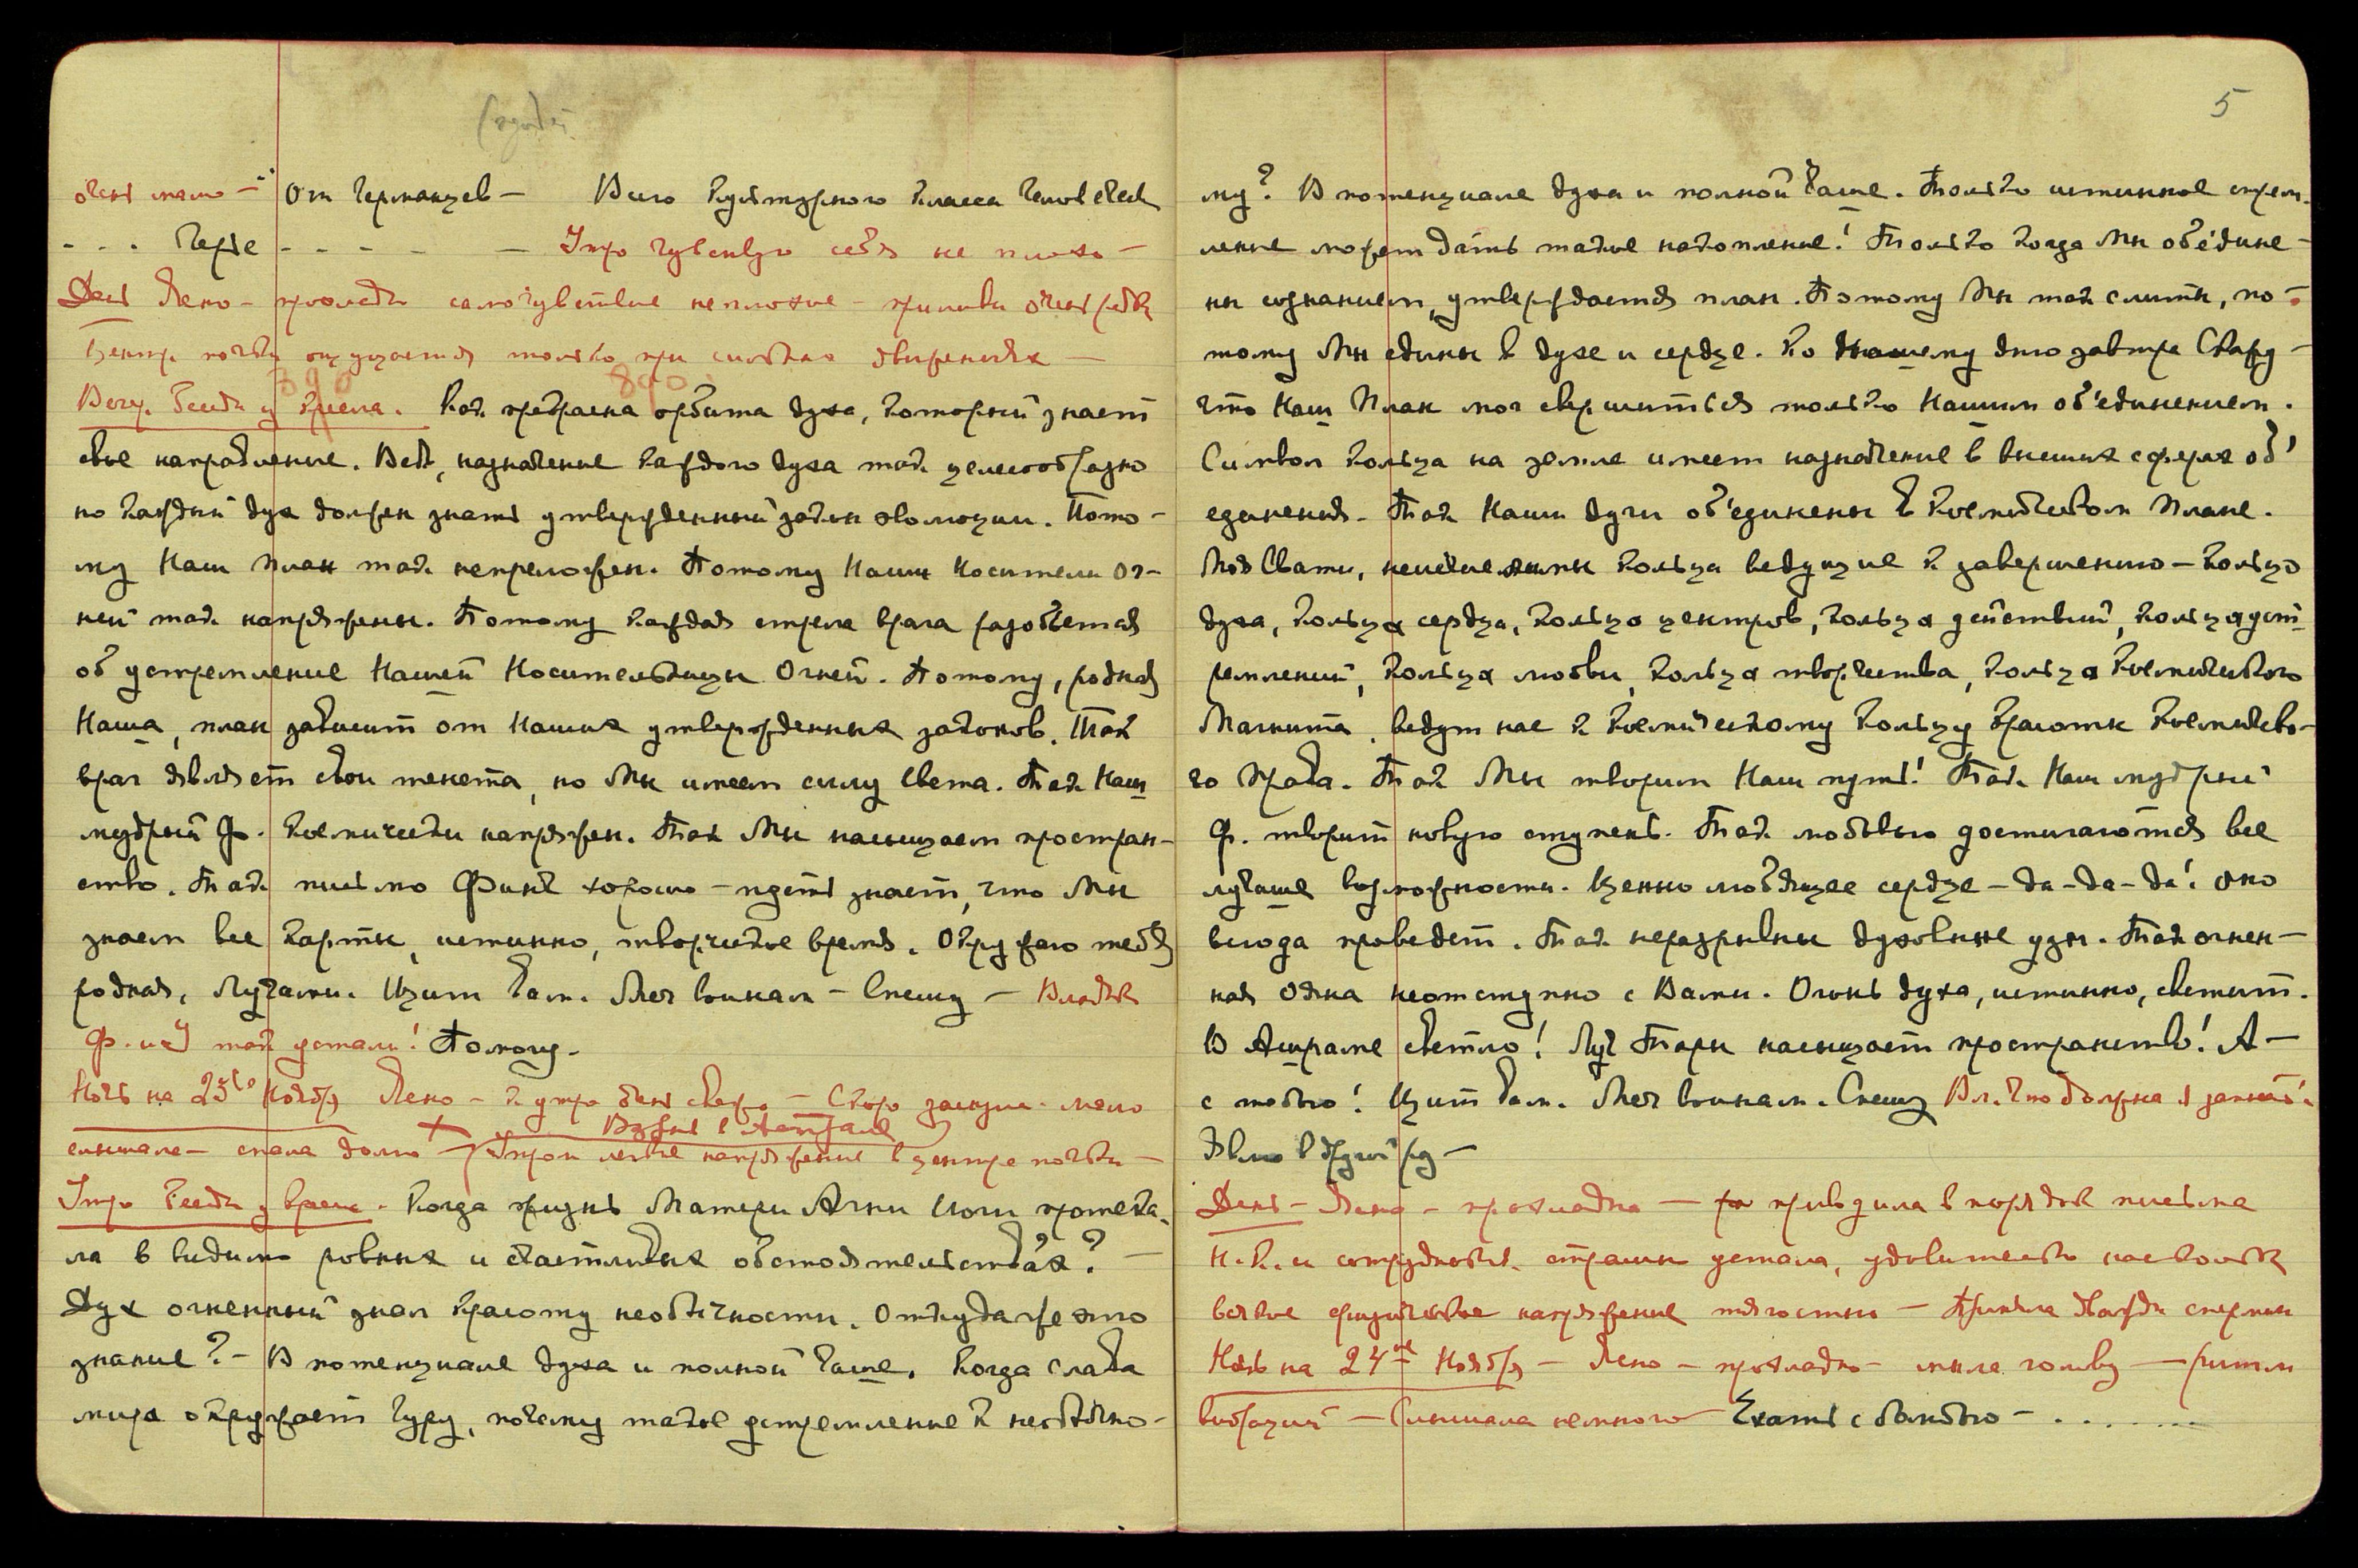 5
очень мало — От Германцев — Всего культурного класса Человечест
- - - Через - - - - — Утро чувствую себя не плохо —
День Ясно — прохлада самочувствие неплохое — приливы очень редк
Центр почки ощущается только при сильных движениях —
Вечер. Беседа у кресла. Как прекрасна орбита духа, который знает
свое направление. Ведь, назначение каждого духа так целесообразно
но каждый дух должен знать утвержденный закон эволюции. Пото-
му Наш План так непреложен. Потому Наши Носители Ог-
ней так напряжены. Потому каждая стрела врага разобьется
об устремление Нашей Носительницы Огней. Потому, родная
Наша, план зависит от Наших утвержденных законов. Так
враг являет свои тенета, но Мы имеем силу Света. Так Наш
мудрый Ф. космически напряжен. Так Мы насыщаем простран-
ство. Так письмо хорошо — пусть знает, что Мы
знаем все карты, истинно, творческое время. Окружаю тебя
родная, Лучами. Щит вам. Меч воинам — Спешу — Владыка
Ф. и я так устали! Помогу.
Ночь на 23ье Ноября Ясно — к утру очень свежо — Скоро заснула. мало
слышала — спала долго — Утром легкое напряжение в центре почки —
Утро Беседа у кресла. Когда жизнь Матери Агни Йоги протека-
ла в видимо ровных и счастливых обстоятельствах? —
Дух огненный знал красоту необычности. Откуда же это
знание? — В потенциале духа и полной Чаше. Когда слава
мира окружает Гуру, почему такое устремление к необычно-
му? В потенциале духа и полной Чаше. Только истинное стрем-
ление может дать такое накопление! Только когда Мы объедине-
ны сознанием, утверждается план. Потому Мы так слиты, по-
тому Мы едины в духе и сердце. Ко Нашему дню завтра Скажу —
что Наш План мог свершиться только Нашим об'единением.
Символ Кольца на земле имеет назначение в внешних сферах об'
единения. Так Наши духи об'единены в Космическом Плане.
Моя Свати, неисчислимы кольца ведущие к завершению — кольцо
духа, кольцо сердца, кольцо центров, кольца действий, кольца уст-
ремлений, кольца любви, кольца творчества, кольца Космического
Магнита, ведут нас к Космическому Кольцу Красоты Космическо-
го Права. Так Мы творим Наш путь! Так Наш мудрый
Ф. творит новую ступень. Так любовью достигаются все
лучшие возможности. Ценно любящее сердце — да - да - да! оно
всюду проведет. Так неразрывны духовные узы. Так огнен-
ная неотступно с Вами. Огонь духа, истинно, светит.
В Ашраме светло! Луч Тары насыщает пространство! Я —
с тобою! Щит вам. Меч воинам. Спешу Вл. Что должна я
День — Ясно — прохладно — приводила в порядок письма
Н.К. и сотрудников. страшно устала, удивительно насколько
всякое физическое напряжение тягостно — Приняла дважды спермин
Ночь на 24ое Ноября — Ясно — прохладно — мыла голову — ритм
вибраций — Слышала немного Ехать с